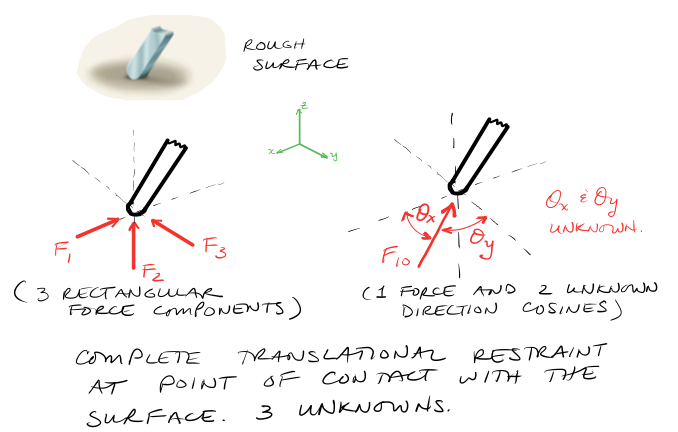 ROUGH
SURFACE
z
x
y
F1
F2
F3
(3 RECTANGULAR
FORCE COMPONENTS)
θx
θy
F10
θx & θy
UNKNOWN.
(1 FORCE AND 2 UNKNOWN
DIRECTION COSINES)
COMPLETE TRANSLATIONAL RESTRAINT
AT POINT OF CONTACT WITH THE
SURFACE. 3 UNKNOWNS.